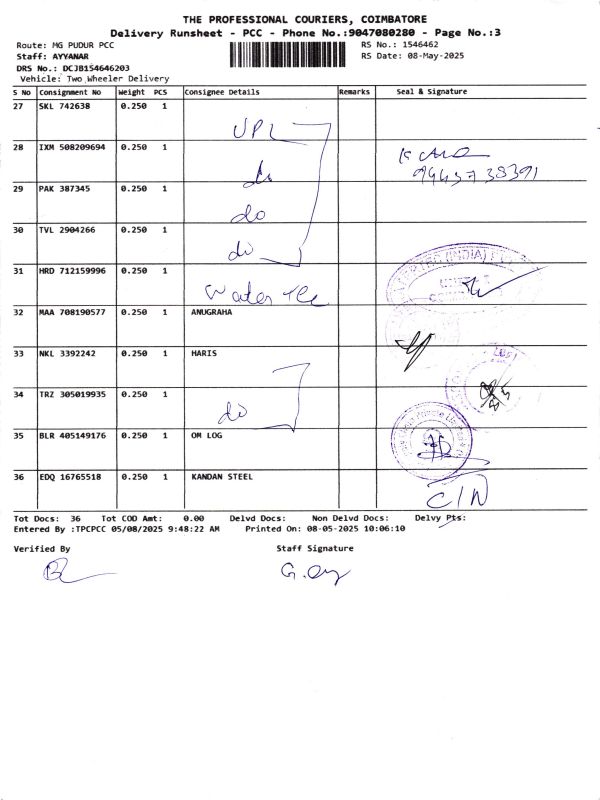 THE PROFESSIONAL COURIERS, COIMBATORE
Delivery Runsheet - PCC - Phone No.:9047080280 - Page No.:3
Route: MG PUDUR PCC RS No.: 1546462
Staff: AYYANAR RS Date: 08-May-2025
DRS No.: DCJB154646203
Vehicle: Two Wheeler Delivery
S No Consignment No Weight PCS Consignee Details Remarks Seal & Signature
27 SKL 742638 0.250 1 UPL
28 IXM 508209694 0.250 1 do
29 PAK 387345 0.250 1 do
30 TVL 2904266 0.250 1 do
31 HRD 712159996 0.250 1 Water Tec
32 MAA 708190577 0.250 1 ANUGRAHA
33 NKL 3392242 0.250 1 HARIS
34 TRZ 305019935 0.250 1 do
35 BLR 405149176 0.250 1 OM LOG
36 EDQ 16765518 0.250 1 KANDAN STEEL
Tot Docs: 36 Tot COD Amt: 0.00 Delvd Docs: Non Delvd Docs: Delvy Pts:
Entered By :TPCPCC 05/08/2025 9:48:22 AM Printed On: 08-05-2025 10:06:10
Verified By Staff Signature